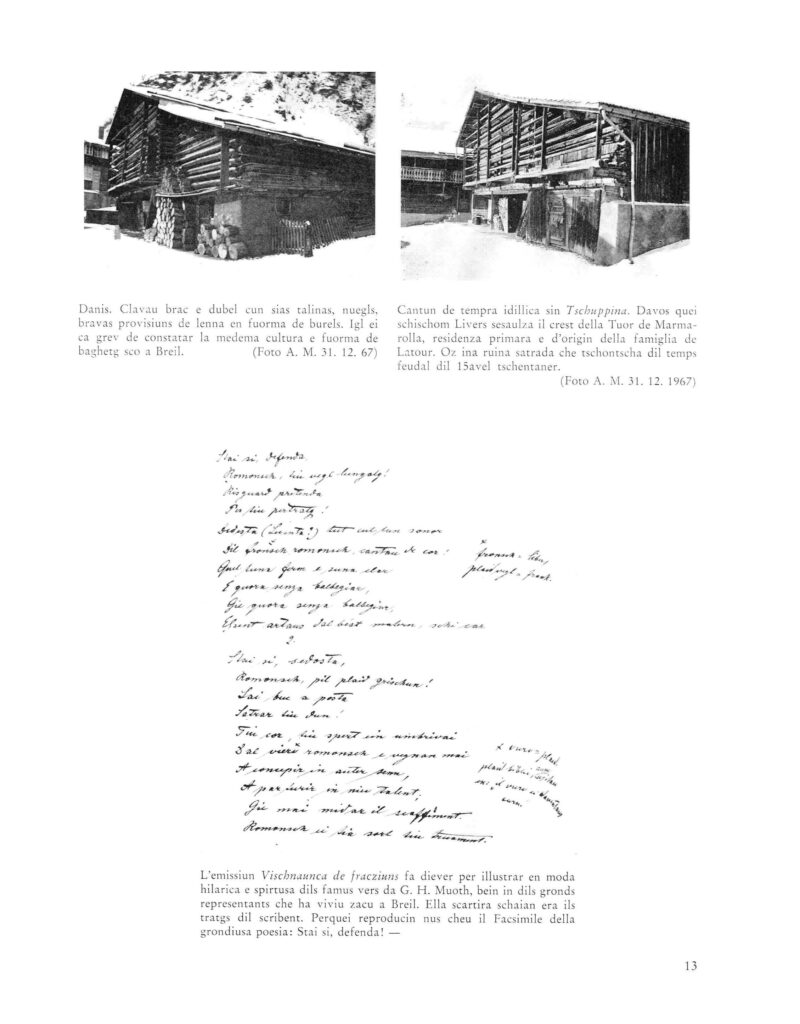 Danis. Clavau brac e dubel cun sias talinas, nuegls,
bravas provisiuns de lenna en fuorma de burels. Igl ei
ca grev de constatar la medema cultura e fuorma de
baghetg sco a Breil. (Foto A. M. 31. 12. 67)
Cantun de tempra idillica sin Tschuppina. Davos quei
schischom Livers sesaulza il crest della Tuor de Marma-
rolla, residenza primara e d'origin della famiglia de
Latour. Oz ina ruina satrada che tschontscha dil temps
feudal dil 15avel tschentaner.
(Foto A. M. 31. 12. 1967)
Stai si, defenda,
Romonsch, tiu vegl lungatg!
Risguard pretenda
Per tiu pertratg!
tut cul tun sonor
Dil romonsch, cantau de cor:
Quel tuna ferm e suna clar
E quora senza balbegiar,
Gie quora senza balbegiar,
artaus dal best matern, schi car
2.
Stai si, sedosta,
Romonsch, pil plaid grischun!
Lai buc a posta
Satrar tiu dun!
Tiu cor, tiu spert ein umbrivai
Dal romonsch e vegnan mai
A concepir in auter senn,
A parturir in niev talent;
Gie mai midar il scaffiment.
Romonsch ei tia sort tiu truament.
L'emissiun Vischnaunca de fracziuns fa diever per illustrar en moda
hilarica e spirtusa dils famus vers da G. H. Muoth, bein in dils gronds
representants che ha viviu zacu a Breil. Ella scartira schaian era ils
tratgs dil scribent. Perquei reproducin nus cheu il Facsimile della
grondiusa poesia: Stai si, defenda! —
13